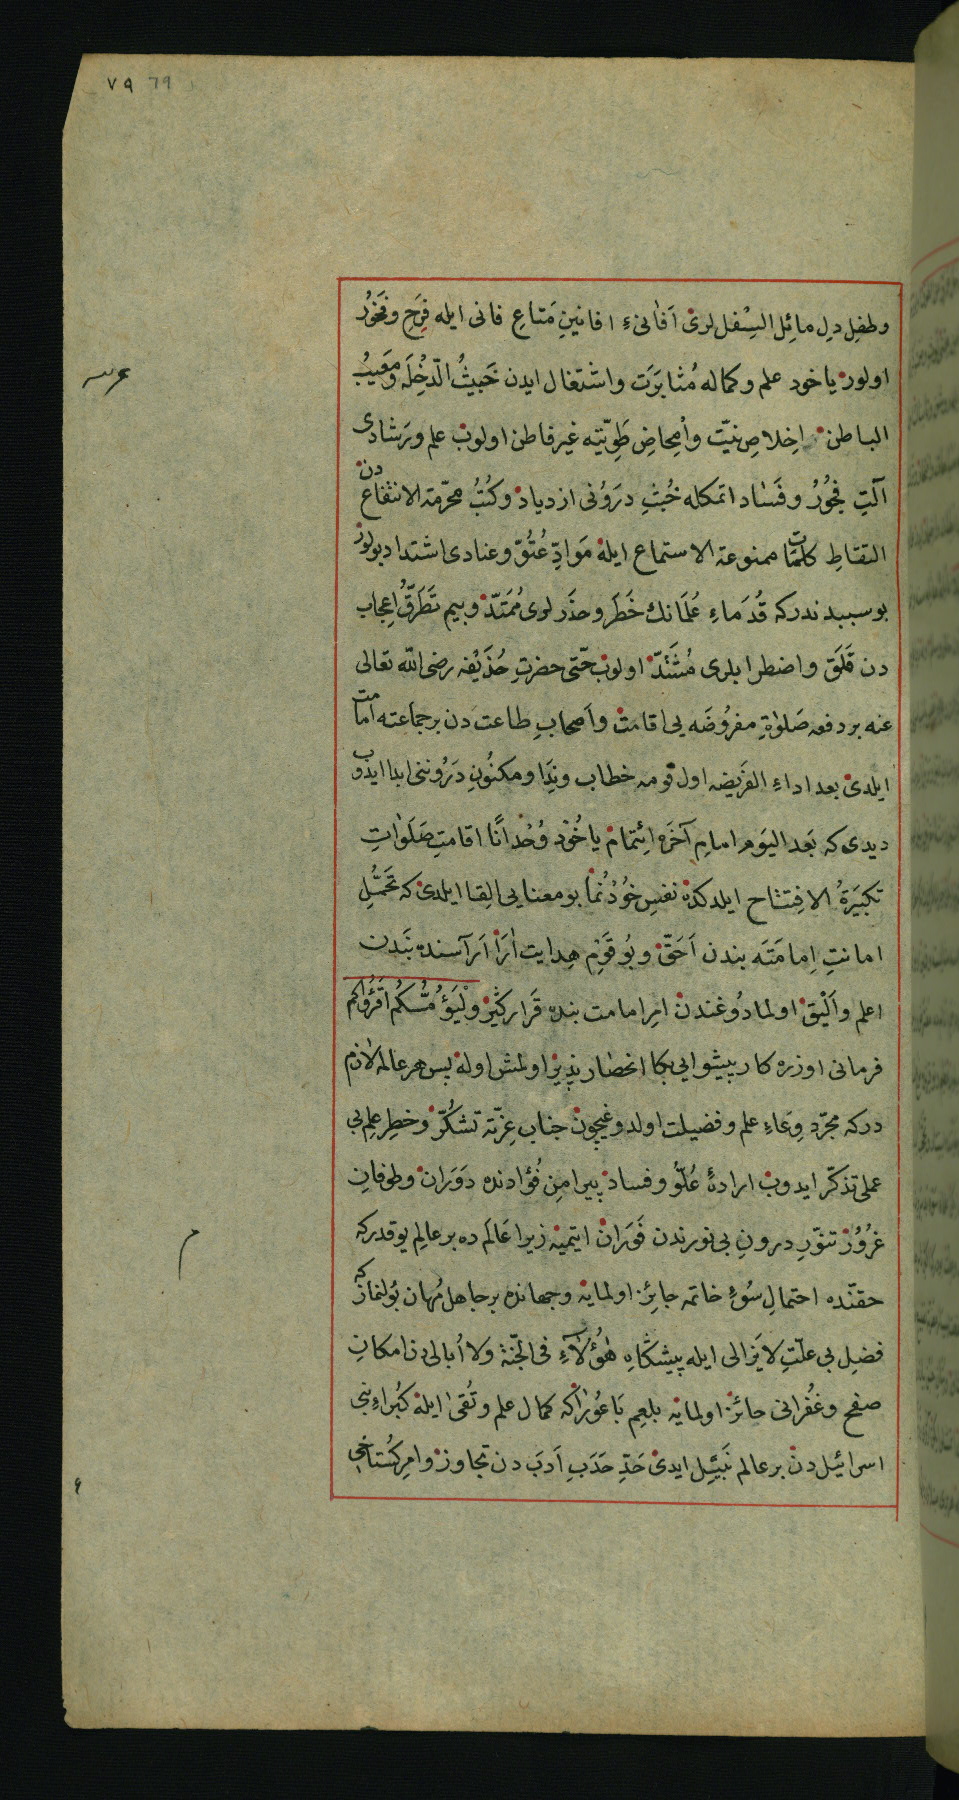 ٧٩ ٦٩
وطفلِ دلِ مائل السِّفل لرى اَفانىءِ افانينِ مَتاعِ فانى ايله فرَحِ وفَخُورُ
اولور ياخود علم وكماله مُثابَرَت واشتغال ايدن خَبيثُ الدّخِلَه ومَعيبُ
الباطن اِخلاصِ نيّت واِمحاضِ طَوِيّتيه غير فاطن اولوب علم ورَشادى
آلتِ فجُورُ وفَسٰاد اتمكله خُبثِ درَوُنى ازدياد وكتُبُ محرّمة الانتفاع دن
التقاطِ كلمات ممنوعة الاستماع ايله مَوادِّ عُتُوّ وعنادى اشتداد بولور
بو سببدندركه قُدَماءِ عُلَمَانك خَطَر وحذَر لرى مُمتَدّ وبيم تَطَرّقُ اِعجاب
دن قَلَق واضطرابلرى مُشتَدّ اولوب حتّى حضرتِ حُذَيْفه رضى الله تعالى
عنه بر دفعه صَلوٰةِ مفرُوضَه يى اقامت واَصحابِ طاعت دن بر جماعته امامت
ايلدى بعد اداءِ الفريضه اول قومه خطاب ونِدَا ومكنُونِ دَرُوننى ابدا ايدوب
ديدى كه بَعد اليَوم امامِ آخَره ائِتمام ياخُود وُحْدانًا اقامتِ صَلَوٰاتِ
تكبيَرةُ الافِتتاح ايلدكده نفسِ خُودْ نُما بو معنايى اِلقا ايلدى كه تَحمّلِ
امانتِ اِمامَتَه بندن اَحَقّ وبُو قَوْمِ هِدايت اٰرَا اَرآسنده بَندن
اعلم واَلْيَقْ اولمادوُغندن امرِ امامت بنده قَراركَيرْ وِلْيَؤُمُّكُم اَقْرَؤُكُم
فرمانى اوزره كار پيشوايى بكا انحصار پذير اولمش اوله پس هر عالمه لازم
دركه مجرّد وِعَاءِ علم وفضيلت اولدوغيچون جناب عِزّته تشكُّر وخطِر علِم بى
عملى تذكّر ايدوب ارادهٔ عُلُوّ وفساد پيرامِن فُؤادنده دَوَران وطوفانِ
غُرُورْ تنوّرِ درونِ بى نورندن فَوَران ايتميه زيرا عَالَم ده بر عالِم يوقدركه
حقنده احتمالِ سُوءِ خاتمه جائز اولمايه وجهانده بر جاهل مُهان بُولنماز كه
فضلِ بى علّتِ لايَزالى ايله پيشكَاهِ هٰؤُلآءِ فى الجنّة ولا اُبالى دن امكانِ
صفح وغُفرانى جائز اولمايه بلعِم بَاعُورَا كه كمال علم وتُقى ايله كُبَراءِ بنى
اسرائيل دن بر عالم نَبيَل ايدى حَدِّ حَدَبِ اَدبَ دن تجاوز وامرِ كُستاخى
م